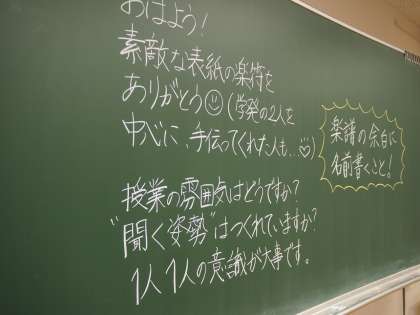 おはよう!
素敵な表紙の楽符を
ありがとう☺(学発の2人を
中心に、手伝ってくれた人も…♡)
楽譜の余白に
名前書くこと!
授業の雰囲気はどうですか?
"聞く姿勢"はつくれていますか?
1人1人の意識が大事です。